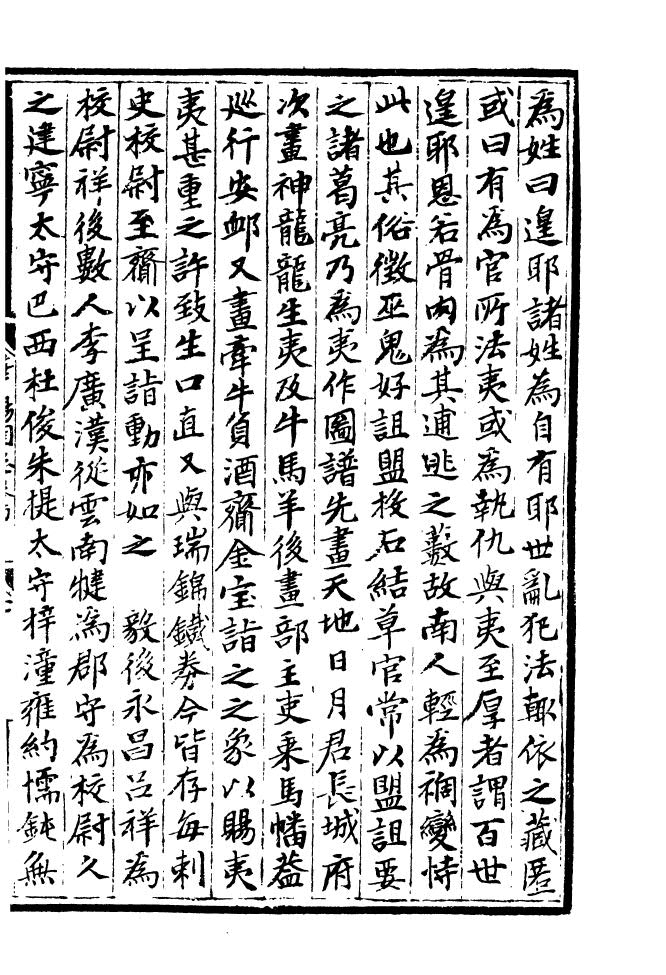 爲姓曰遑耶諸姓為自有耶世亂犯法輒依之藏匿
或曰有爲官所法夷或爲執仇與夷至厚者謂百世
遑耶恩若骨肉爲其逋逃之藪故南人輕為禍變恃
此也其俗徴巫鬼好詛盟投石結草官常以盟詛要
之諸葛亮乃爲夷作圖譜先畫天地日月君長城府
次畫神龍龍生夷及牛馬羊後畫部主吏乘馬幡蓋
巡行安䘏又畫牽牛負酒齎金宝詣之之象以賜夷
夷甚重之許致生口直又與瑞錦鐵券今皆存每刺
史校尉至齎以呈詣動亦如之 毅後永昌吕祥為
校尉祥後數人李廣漢從雲南犍為郡守為校尉久
之建寧太守巴西杜俊朱提太守梓潼雍約懦鈍無